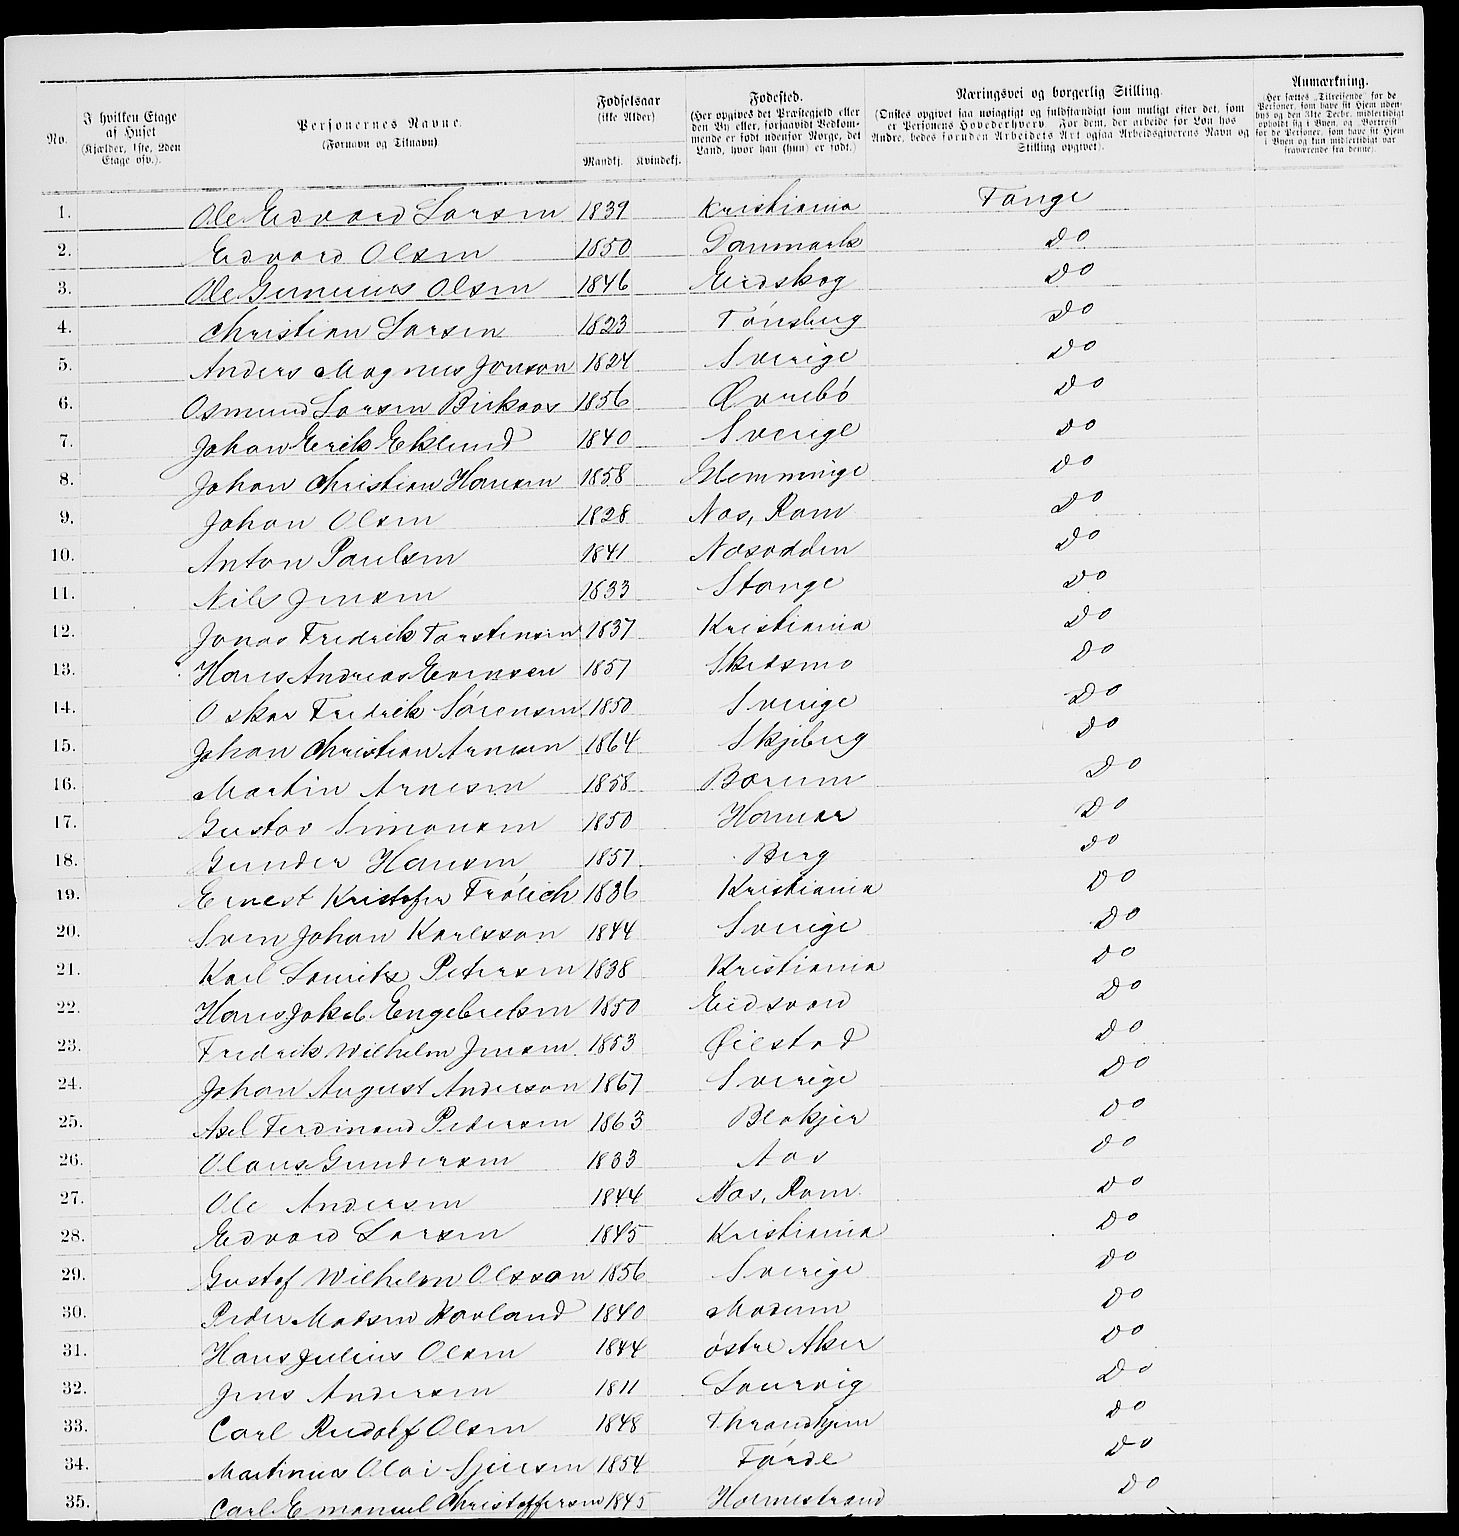 No.
I hvilken Etage af Huset (Kjælder, 1ste, 2den Etage osv.).
Personernes Navne. (Fornavn og Tilnavn)
Fødselsaar (ikke Alder) Mandkj. Kvindekj.
Fødested. (Her opgives det Præstegjeld eller den By eller, forsaavidt Vedkommende er født udenfor Norge, det Land, hvor han (hun) er født.)
Næringsvei og borgerlig Stilling. (Ønskes opgivet saa nøiagtigt og fuldstændigt som muligt efter det, som er Personens Hovederhverv. For dem, der arbeide for Løn hos Andre, bedes foruden Arbeidets Art ogsaa Arbeidsgiverens Navn og Stilling opgivet).
Anmærkning. (Her sættes „Tilreisende" for de Personer, som have sit Hjem udenbys og den 31te Decbr. midlertidigt opholdt sig i Byen, og „Bortreist" for de Personer, som have sit Hjem i Byen og kun midlertidigt var fraværende fra denne).
1. Ole Edvard Larsen 1839 Kristiania Fange
2. Edvard Olsen 1850 Danmark Do
3. Ole Gunerius Olsen 1846 Eidskog Do
4. Christian Larsen 1823 Tønsberg Do
5. Anders Magnus Jonson 1824 Sverige Do
6. Osmund Larsen Birkaas 1856 Øvrebø Do
7. Johan Erik Eklund 1840 Sverige Do
8. Johan Christian Hansen 1858 Glemminge Do
9. Johan Olsen 1828 Næs, Rom Do
10. Anton Paulsen 1841 Næsodden Do
11. Nils Jensen 1833 Stange Do
12. Jonas Fredrik Torstensen 1837 Kristiania Do
13. Hans Andreas Evensen 1857 Skedsmo Do
14. Oskar Fredrik Sørensen 1850 Sverige Do
15. Johan Christian Arnesen 1864 Skjeberg Do
16. Martin Arnesen 1858 Bærum Do
17. Gustav Simonsen 1850 Hamar Do
18. Gunder Hansen 1857 Berg Do
19. Ernest Kristofer Frølich 1836 Kristiania Do
20. Sven Johan Karlsson 1844 Sverige Do
21. Karl Lauritz Petersen 1838 Kristiania Do
22. Hans Jakob Engebretsen 1850 Eidsvold Do
23. Fredrik Wilhelm Jensen 1853 Øiestad Do
24. Johan August Anderson 1867 Sverige Do
25. Axel Ferdinand Pedersen 1863 Blakjer Do
26. Olaus Gundersen 1833 Aas Do
27. Ole Andersen 1844 Næs, Rom. Do
28. Edvard Larsen 1845 Kristiania Do
29. Gustaf Wilhelm Olsson 1856 Sverige Do
30. Peder Madsen Kovland 1840 Modum Do
31. Hans Julius Olsen 1844 Østre Aker Do
32. Jens Andersen 1811 Laurvig Do
33. Carl Rudolf Olsen 1848 Throndhjem Do
34. Martinius Olai 1854 Førde Do
35. Carl Emanuel Christoffersen 1845 Holmestrand Do